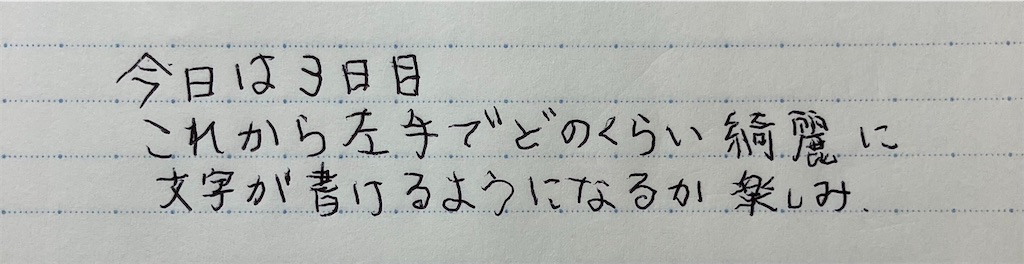 今日は3日目
これから左手でどのくらい綺麗に
文字が書けるようになるか楽しみ.